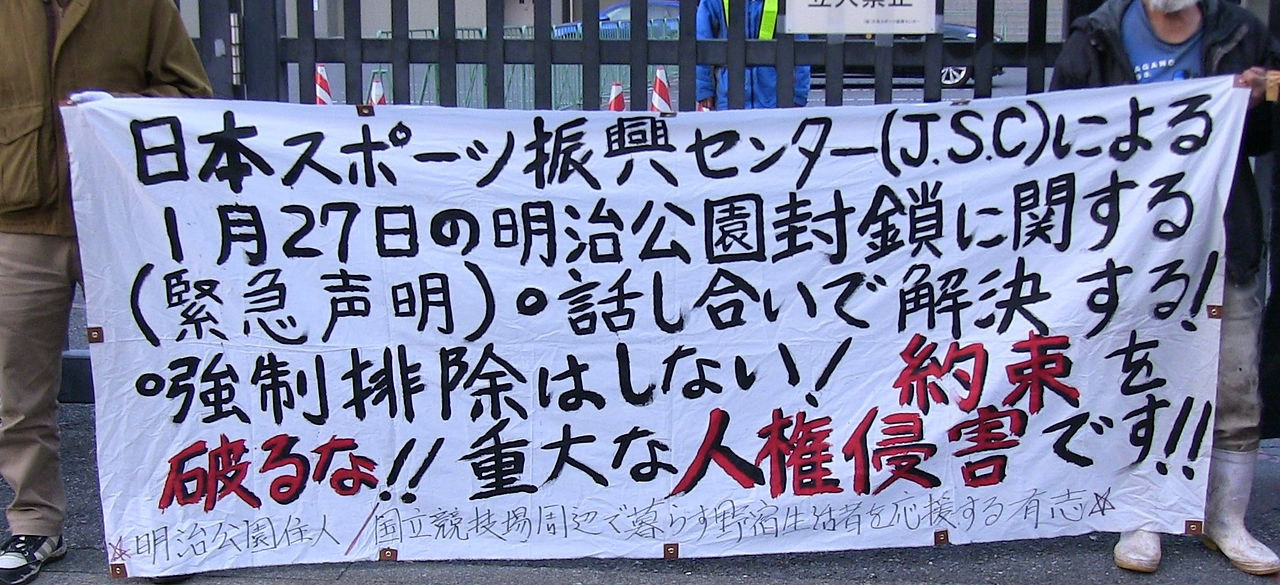 立入禁止
日本スポーツ振興センター(J.S.C)による
1月27日の明治公園封鎖に関する
(緊急声明)。話し合いで解決する!
。強制排除はしない! 約束を
破るな!! 重大な人権侵害です!!
☆明治公園住人/国立競技場周辺で暮らす野宿生活者を応援する有志☆